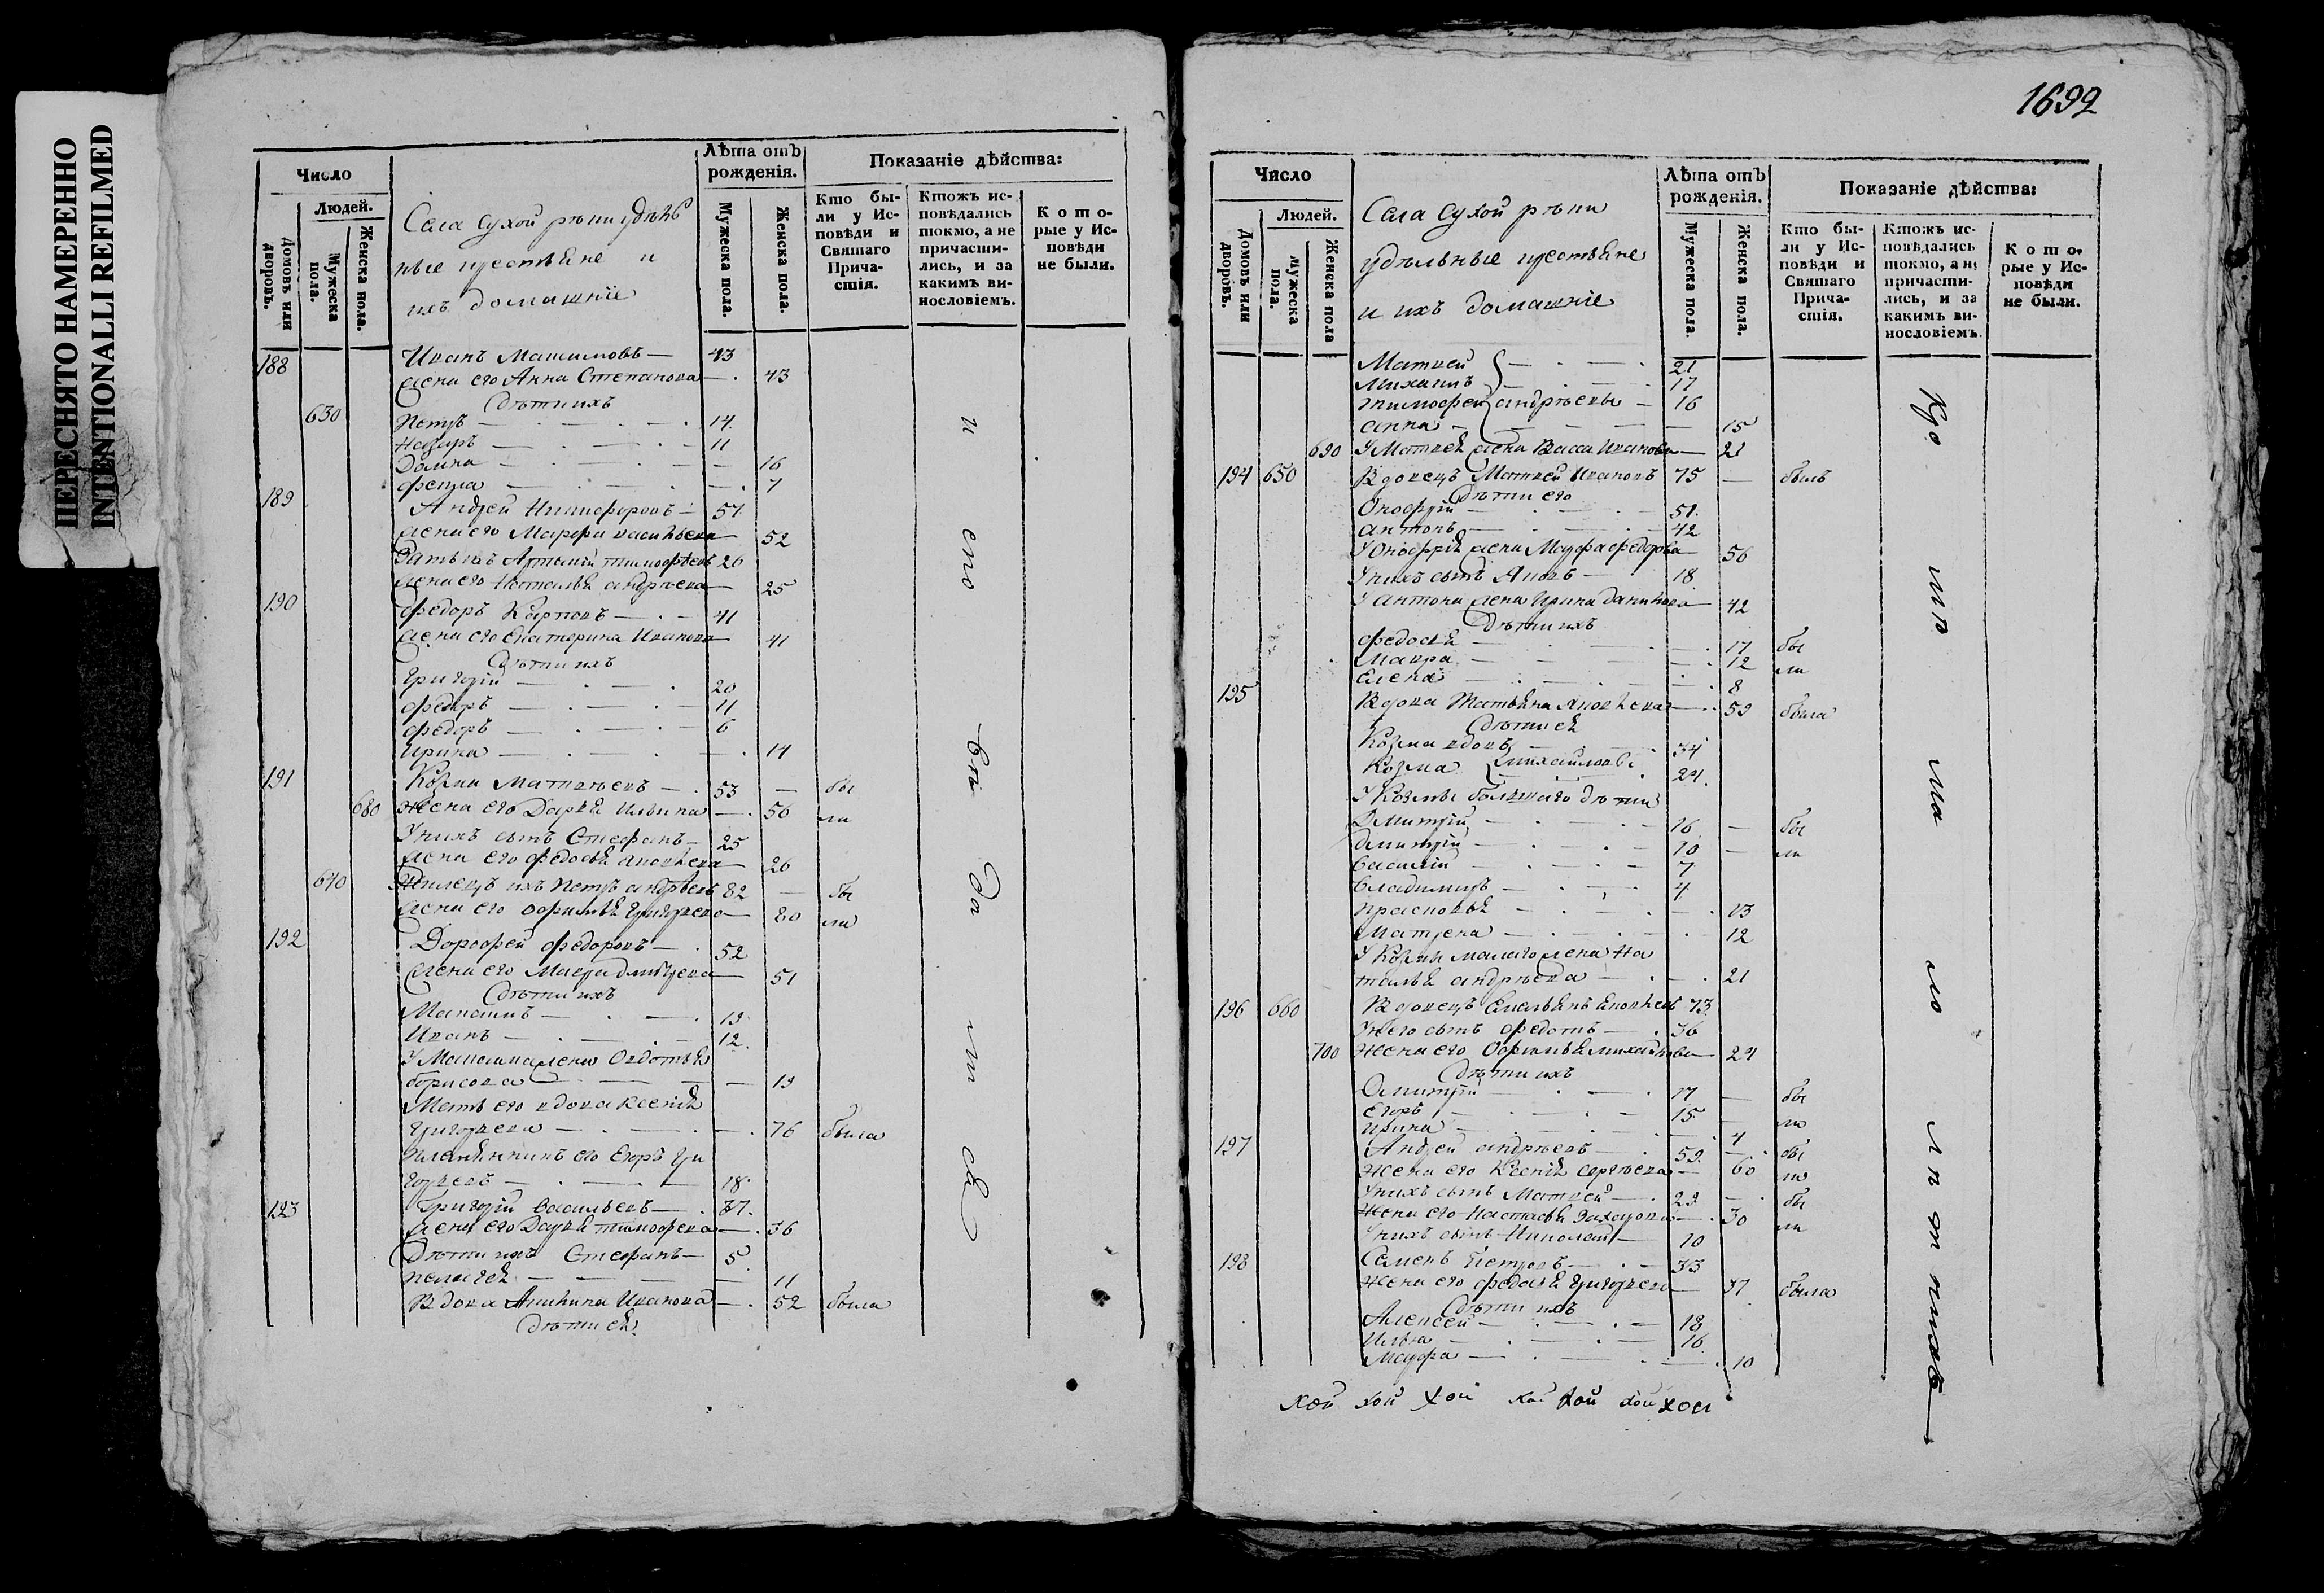 ПЕРЕСНЯТО НАМЕРЕННО
INTENTIONALLI REFILMED
Число
Людей.
Домовъ или дворовъ.
Мужеска пола.
Женска пола.
Села Сухой рѣки удѣль
ные крестьяне и
ихъ домашніе
Лѣта отъ рожденія.
Мужеска пола.
Женска пола.
Показаніе дѣйства:
Кто были у Исповѣди и Святаго Причастія.
Ктожъ исповѣдались токмо, а не причастились, и за какимъ винословіемъ.
Которые у Исповѣди не были.
188 Иванъ 43
жена его Анна Степанова 43
дѣти ихъ
630 Петръ 14
Назаръ 11
Домна 16
Фекла 7
189 Андрей Никифоровъ 57
жена его Марфа Васильева 52
Зять ихъ Артемій Тимофѣевъ 26
жена его Наталья Андрѣева 25
190 Федоръ Карповъ 41
жена его Екатерина Иванова 41
дѣти ихъ
Григорій 20
Федоръ 11
Федоръ 6
Ирина 14
191 Козма Матвѣевъ 53 бы
680 Жена его Дарья Ильина 56 ли
У нихъ сынъ Стефанъ 25
жена его Федосья Яковлева 26
640 ихъ Петръ Андрѣевъ 82 бы
жена его Офимья Григорьева 80 ли
192 Дорофей Федоровъ 52
жена его 51
дѣти ихъ
19
Иванъ 12
жена Овдотья
Борисова 19
Мать его вдова Ксенія
Григорьева 76 была
Племянникъ его Егоръ Гри
горьевъ 18
193 Григорій Васильевъ 37
жена его Дарья Тимофеева 36
Дѣти ихъ Стефанъ 5
Пелагея 11
Вдова Акилина Иванова 52 была
дѣти ея
1692
Число
Людей.
Домовъ или дворовъ.
Мужеска пола.
Женска пола
Села Сухой рѣки
удѣльные крестьяне
и ихъ домашніе
Лѣта отъ рожденія.
Мужеска пола.
Женска пола.
Показаніе дѣйства:
Кто были у Исповѣди и Святаго Причастія.
Ктожъ исповѣдались токмо, а не причастились, и за какимъ винословіемъ.
Которые у Исповѣди не были.
Матвей 21
Михаилъ 17
Тимофей Андрѣевы 16
Анна 15
690 У Матвея жена Васса Иванова 21
194 650 Вдовецъ Матвей Ивановъ 75 былъ
Дѣти его
Онофрій 51
Антонъ 42
У Онофрія жена Марфа Федорова 56
У нихъ сынъ Яковъ 18
У Антона жена Ирина Данилова 42
Дѣти ихъ
Федосья 17 бы
Мавра 12 ли
Елена 8
195 Вдова Татьяна Яковлева 59 была
Дѣти ея
Козма вдовъ 34
Козма Михайловы 24
У Козмы большаго дѣти
Дмитрій 16 бы
Дмитрій 10 ли
Василій 7
Владимиръ 4
Прасковья 13
Матрена 12
У Козмы малаго жена На
талья Андрѣева 21
196 660 Вдовецъ Емельянъ Яковлевъ 73
У него сынъ Федотъ 36
700 Жена его Офимья Михайлова 24
Дѣти ихъ
Дмитрій 17 бы
Егоръ 15 ли
Ирина 4
197 Андрей Андрѣевъ 59 бы
Жена его Ксенія Сергѣева 60 ли
У нихъ сынъ Матвей 29 бы
Жена его Настасья Захарова 30 ли
У нихъ сынъ Николай 10
198 Семенъ Петровъ 33
Жена его Федосья Григорьева 37 была
Дѣти ихъ
Алексей 18
Илья 16
Марфа 10
хой хой хой хой хой хой хой